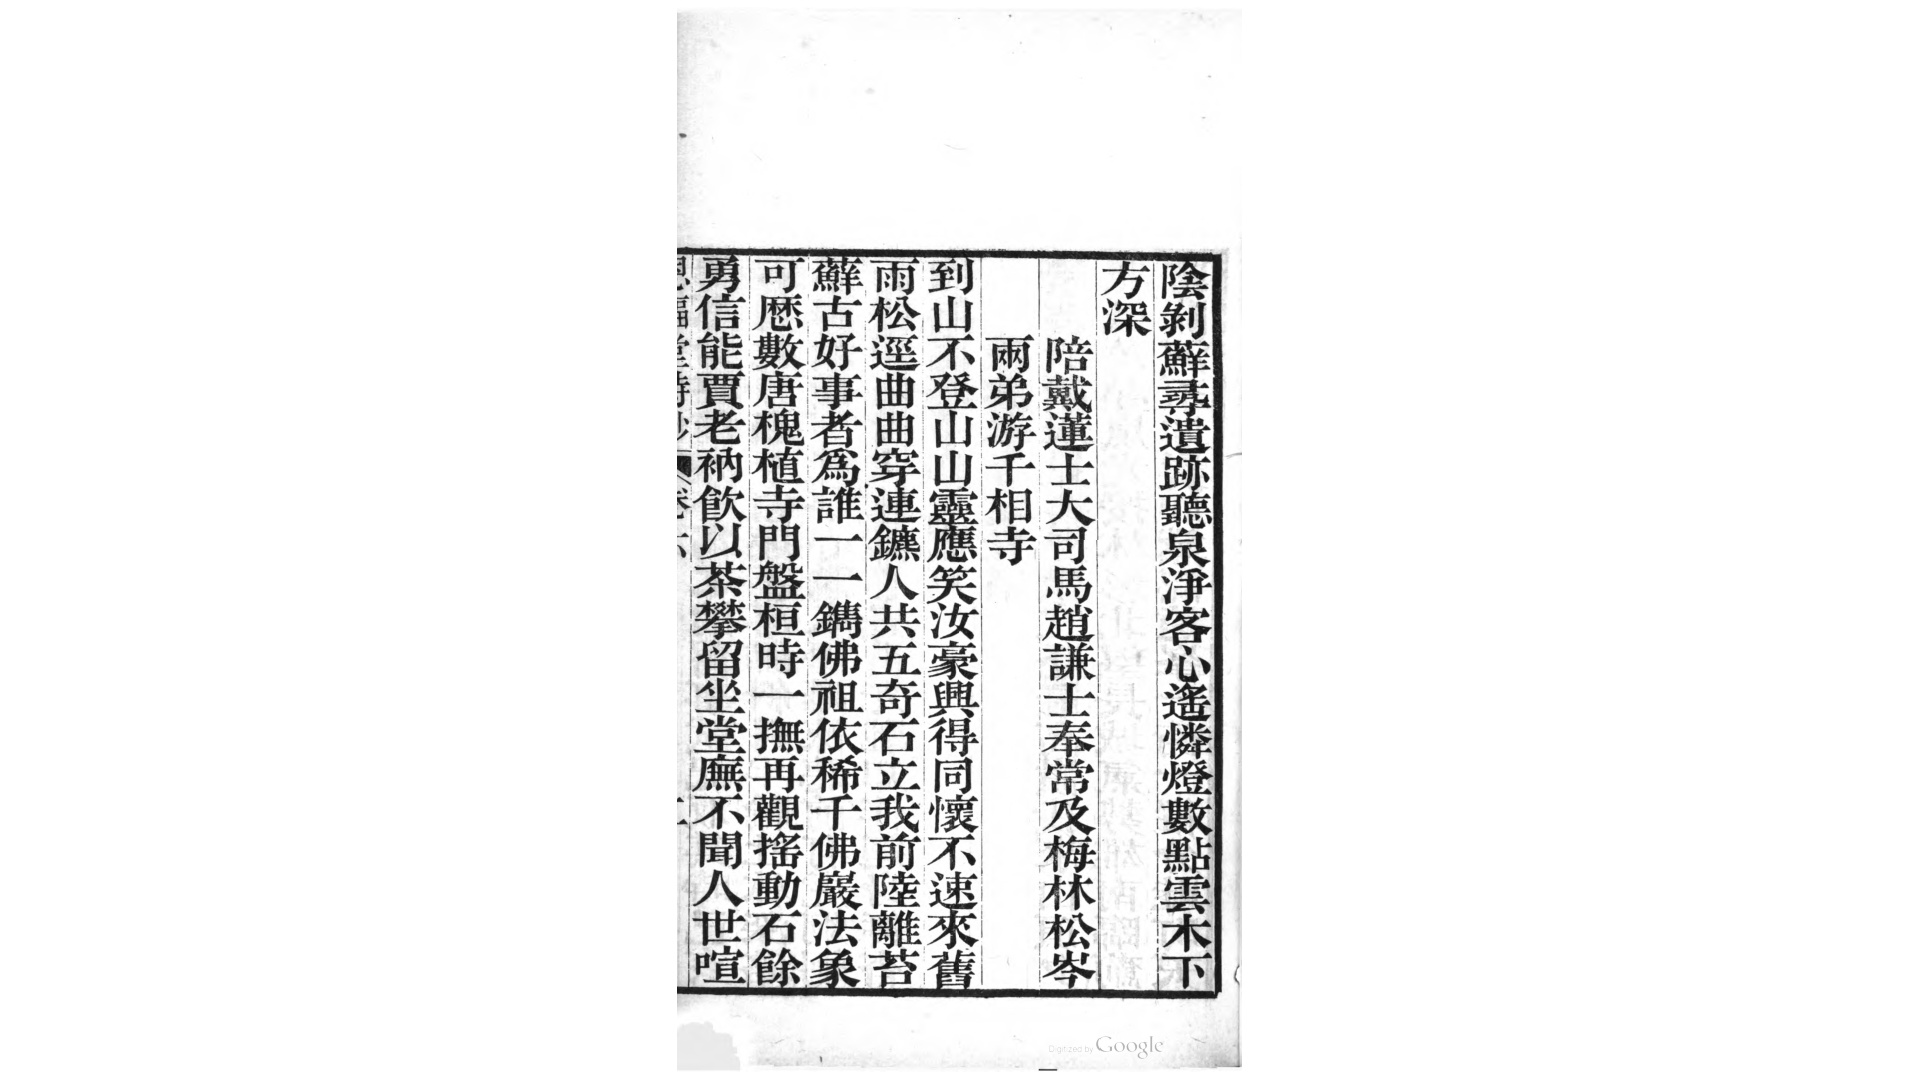 陰剝蘚尋遺跡聽泉淨客心遙憐燈數點雲木下
方深
陪戴蓮士大司馬趙謙士奉常及梅林松岑
兩弟游千相寺
到山不登山山靈應笑汝豪興得同懷不速來舊
雨松逕曲曲穿連鑣人共五奇石立我前陸離苔
蘚古好事者為誰一一鐫佛祖依稀千佛巖法象
可歷數唐槐植寺門盤桓時一撫再觀搖動石餘
勇信能賈老衲飲以茶攀留坐堂廡不聞人世喧
Digitized by Google